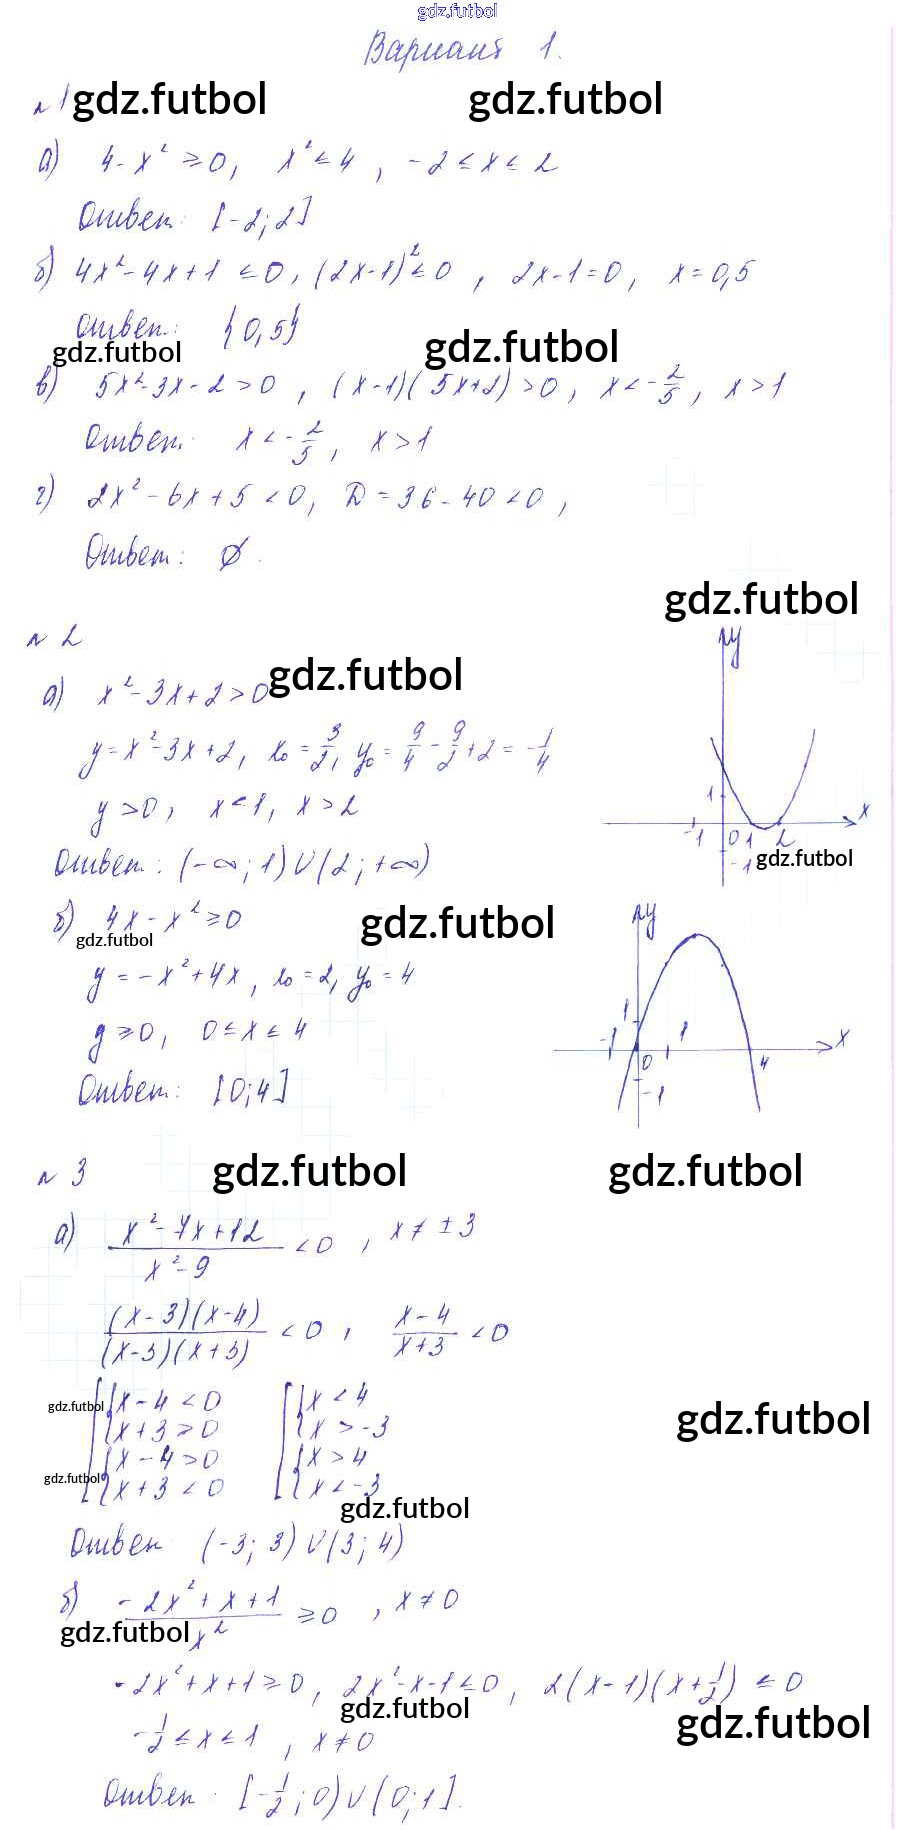 gdz.futbol
Вариант 1.
№1 gdz.futbol gdz.futbol
а) 4-x² ≥ 0, x² ≤ 4, -2 ≤ x ≤ 2
Ответ: [-2; 2]
б) 4x²-4x+1 ≤ 0, (2x-1)² ≤ 0, 2x-1=0, x=0,5
Ответ: {0,5}
gdz.futbol gdz.futbol
в) 5x²-3x-2 > 0, (x-1)(5x+2) > 0, x < -2/5, x > 1
Ответ: x < -2/5, x > 1
г) 2x²-6x+5 < 0, D = 36-40 < 0,
Ответ: ∅.
gdz.futbol
№ 2
а) x²-3x+2 > 0 gdz.futbol
y = x²-3x+2, x₀ = 3/2, y₀ = 9/4 - 9/2 + 2 = -1/4
y > 0, x < 1, x > 2
y
1
x
-1 0 1 2
-1
gdz.futbol
Ответ: (-∞; 1) ∪ (2; +∞)
б) 4x-x² ≥ 0 gdz.futbol
gdz.futbol
y = -x²+4x, x₀ = 2, y₀ = 4
y ≥ 0, 0 ≤ x ≤ 4
Ответ: [0; 4]
y
1
-1 1 x
0 4
-1
№ 3 gdz.futbol gdz.futbol
а) (x²-7x+12)/(x²-9) < 0, x ≠ ±3
((x-3)(x-4))/((x-3)(x+3)) < 0, (x-4)/(x+3) < 0
gdz.futbol [{x-4 < 0 [{x < 4 gdz.futbol
{x+3 > 0 {x > -3
{x-4 > 0 {x > 4
gdz.futbol {x+3 < 0 {x < -3
gdz.futbol
Ответ (-3; 3) ∪ (3; 4)
б) (-2x²+x+1)/x² ≥ 0, x ≠ 0
gdz.futbol
-2x²+x+1 ≥ 0, 2x²-x-1 ≤ 0, 2(x-1)(x+1/2) ≤ 0
gdz.futbol gdz.futbol
-1/2 ≤ x ≤ 1, x ≠ 0
Ответ: [-1/2; 0) ∪ (0; 1].